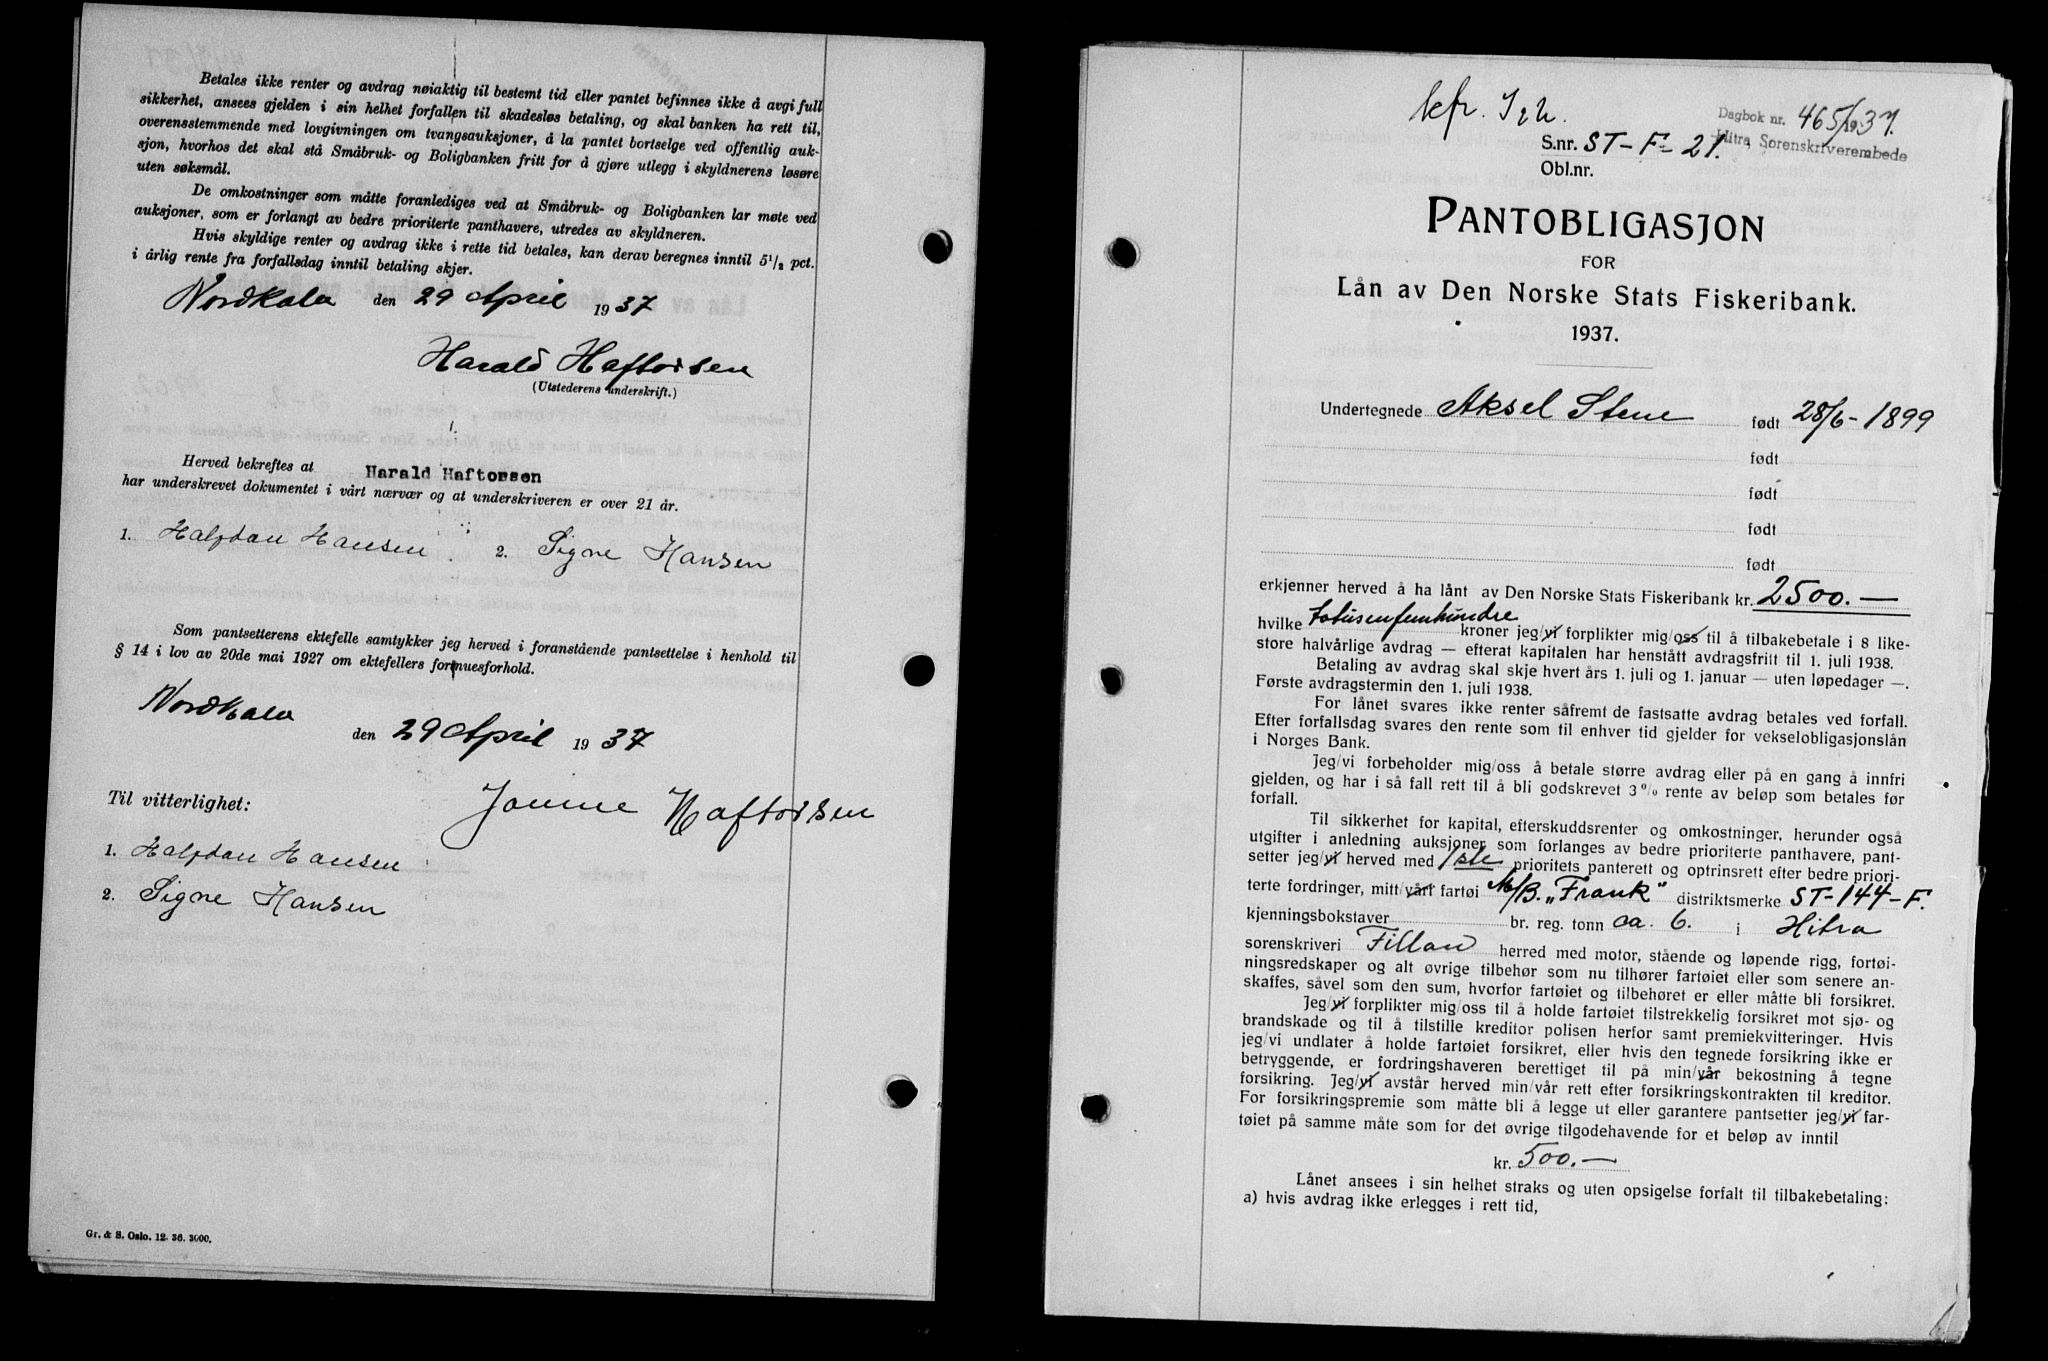 Betales ikke renter og avdrag nøiaktig til bestemt tid eller pantet befinnes ikke å avgi full
sikkerhet, ansees gjelden i sin helhet forfallen til skadesløs betaling, og skal banken ha rett til,
overensstemmende med lovgivningen om tvangsauksjoner, å la pantet bortselge ved offentlig auk-
sjon, hvorhos det skal stå Småbruk- og Boligbanken fritt for å gjøre utlegg i skyldnerens løsøre
uten søksmål.
De omkostninger som måtte foranlediges ved at Småbruk- og Boligbanken lar møte ved
auksjoner, som er forlangt av bedre prioriterte panthavere, utredes av skyldneren.
Hvis skyldige renter og avdrag ikke i rette tid betales, kan derav beregnes inntil 5½ pct.
i årlig rente fra forfallsdag inntil betaling skjer.
den 29 April 1937
Harald Haftorsen
(Utstederens underskrift.)
Herved bekreftes at Harald Haftorsen
har underskrevet dokumentet i vårt nærvær og at underskriveren er over 21 år.
1. Halfdan Hansen 2. Signe Hansen
Som pantsetterens ektefelle samtykker jeg herved i foranstående pantsettelse i henhold til
§ 14 i lov av 20de mai 1927 om ektefellers formuesforhold.
den 29 April 1937
Haftorsen
Til vitterlighet:
1. Halfdan Hansen
2. Signe Hansen
Gr. & S. Oslo. 12. 36. 3000.
kfr.
Dagbok nr. 465/1937.
Hitra Sorenskriverembede
S.nr. ST-F-21.
Obl.nr.
PANTOBLIGASJON
FOR
Lån av Den Norske Stats Fiskeribank.
1937.
Undertegnede Aksel Stene født 28/6-1899
født
født
født
født
erkjenner herved å ha lånt av Den Norske Stats Fiskeribank kr. 2500.—
hvilke totusenfemhundre kroner jeg/vi forplikter mig/oss til å tilbakebetale i 8 like-
store halvårlige avdrag — efterat kapitalen har henstått avdragsfritt til 1. juli 1938.
Betaling av avdrag skal skje hvert års 1. juli og 1. januar — uten løpedager —.
Første avdragstermin den 1. juli 1938.
For lånet svares ikke renter såfremt de fastsatte avdrag betales ved forfall.
Efter forfallsdag svares den rente som til enhver tid gjelder for vekselobligasjonslån
i Norges Bank.
Jeg/vi forbeholder mig/oss å betale større avdrag eller på en gang å innfri
gjelden, og har i så fall rett til å bli godskrevet 3 % rente av beløp som betales før
forfall.
Til sikkerhet for kapital, efterskuddsrenter og omkostninger, herunder også
utgifter i anledning auksjoner som forlanges av bedre prioriterte panthavere, pant-
setter jeg/vi herved med 1ste prioritets panterett og optrinsrett efter bedre priori-
terte fordringer, mitt/vårt fartøi M/B. „Frank" distriktsmerke ST-144-F.
kjenningsbokstaver br. reg. tonn ca. 6. i Hitra
sorenskriveri Fillan herred med motor, stående og løpende rigg, fortøi-
ningsredskaper og alt øvrige tilbehør som nu tilhører fartøiet eller som senere an-
skaffes, såvel som den sum, hvorfor fartøiet og tilbehøret er eller måtte bli forsikret.
Jeg/vi forplikter mig/oss til å holde fartøiet tilstrekkelig forsikret mot sjø- og
brandskade og til å tilstille kreditor polisen herfor samt premiekvitteringer. Hvis
jeg/vi undlater å holde fartøiet forsikret, eller hvis den tegnede forsikring ikke er
betryggende, er fordringshaveren berettiget til på min/vår bekostning å tegne
forsikring. Jeg/vi avstår herved min/vår rett efter forsikringskontrakten til kreditor.
For forsikringspremie som måtte bli å legge ut eller garantere pantsetter jeg/vi far-
tøiet på samme måte som for det øvrige tilgodehavende for et beløp av inntil
kr. 500.—
Lånet ansees i sin helhet straks og uten opsigelse forfalt til tilbakebetaling:
a) hvis avdrag ikke erlegges i rett tid,